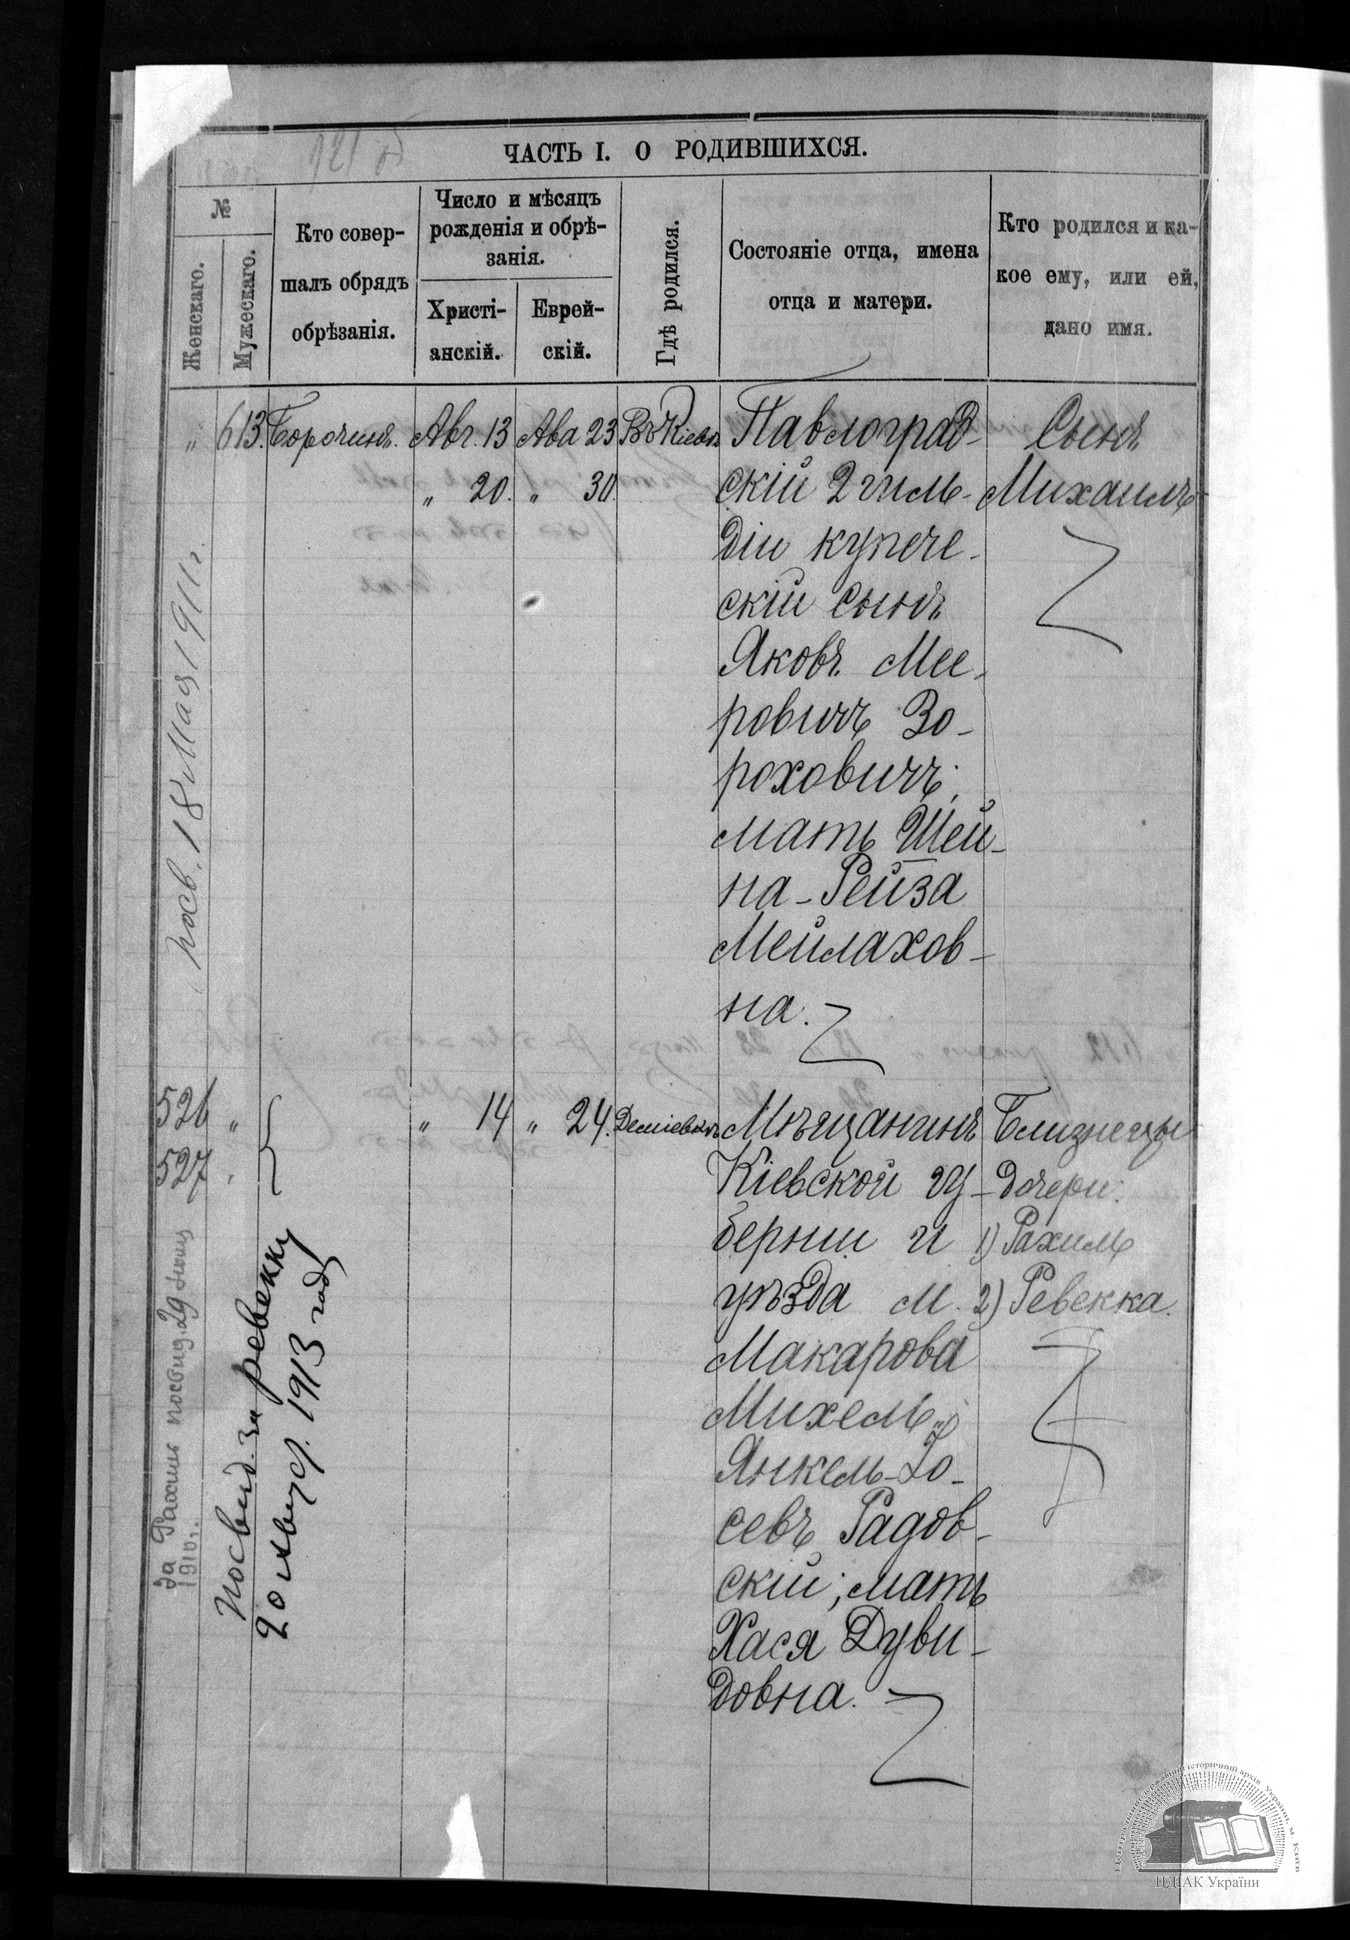 ЧАСТЬ I. О РОДИВШИХСЯ.
№
Женскаго.
Мужескаго.
Кто совер-
шалъ обрядъ
обрѣзанія.
Число и мѣсяцъ
рожденія и обрѣ-
занія.
Христі-
анскій.
Еврей-
скій.
Гдѣ родился.
Состояніе отца, имена
отца и матери.
Кто родился и ка-
кое ему, или ей,
дано имя.
„ 613. Борочинъ. Авг. 13 Ава 23 Въ Кіевѣ
„ 20. „ 30.
Павлоград-
скій 2 гиль-
діи купече-
скій сынъ
Яковъ Мее-
ровичъ Зо-
роховичъ;
мать Шей-
на-Рейза
Мейлахов-
на.
Сынъ
Михаилъ
посв. 18 Мая 1911 г.
526 „
527 „
„ 14 „ 24. Деміевкѣ
Мѣщанинъ
Кіевской гу-
берніи и
уѣзда м.
Макарова
Михель-
Янкель-Іо-
севъ Радов-
скій; мать
Хася Дуви-
довна.
Близнецы
дочери:
1) Рахиль
2) Ревекка.
за Рахиль посвид. 29
1910 г.
посвид. за Ревекку
20 1913 года
Центральний державний історичний архів України, м. Київ
ЦДІАК України